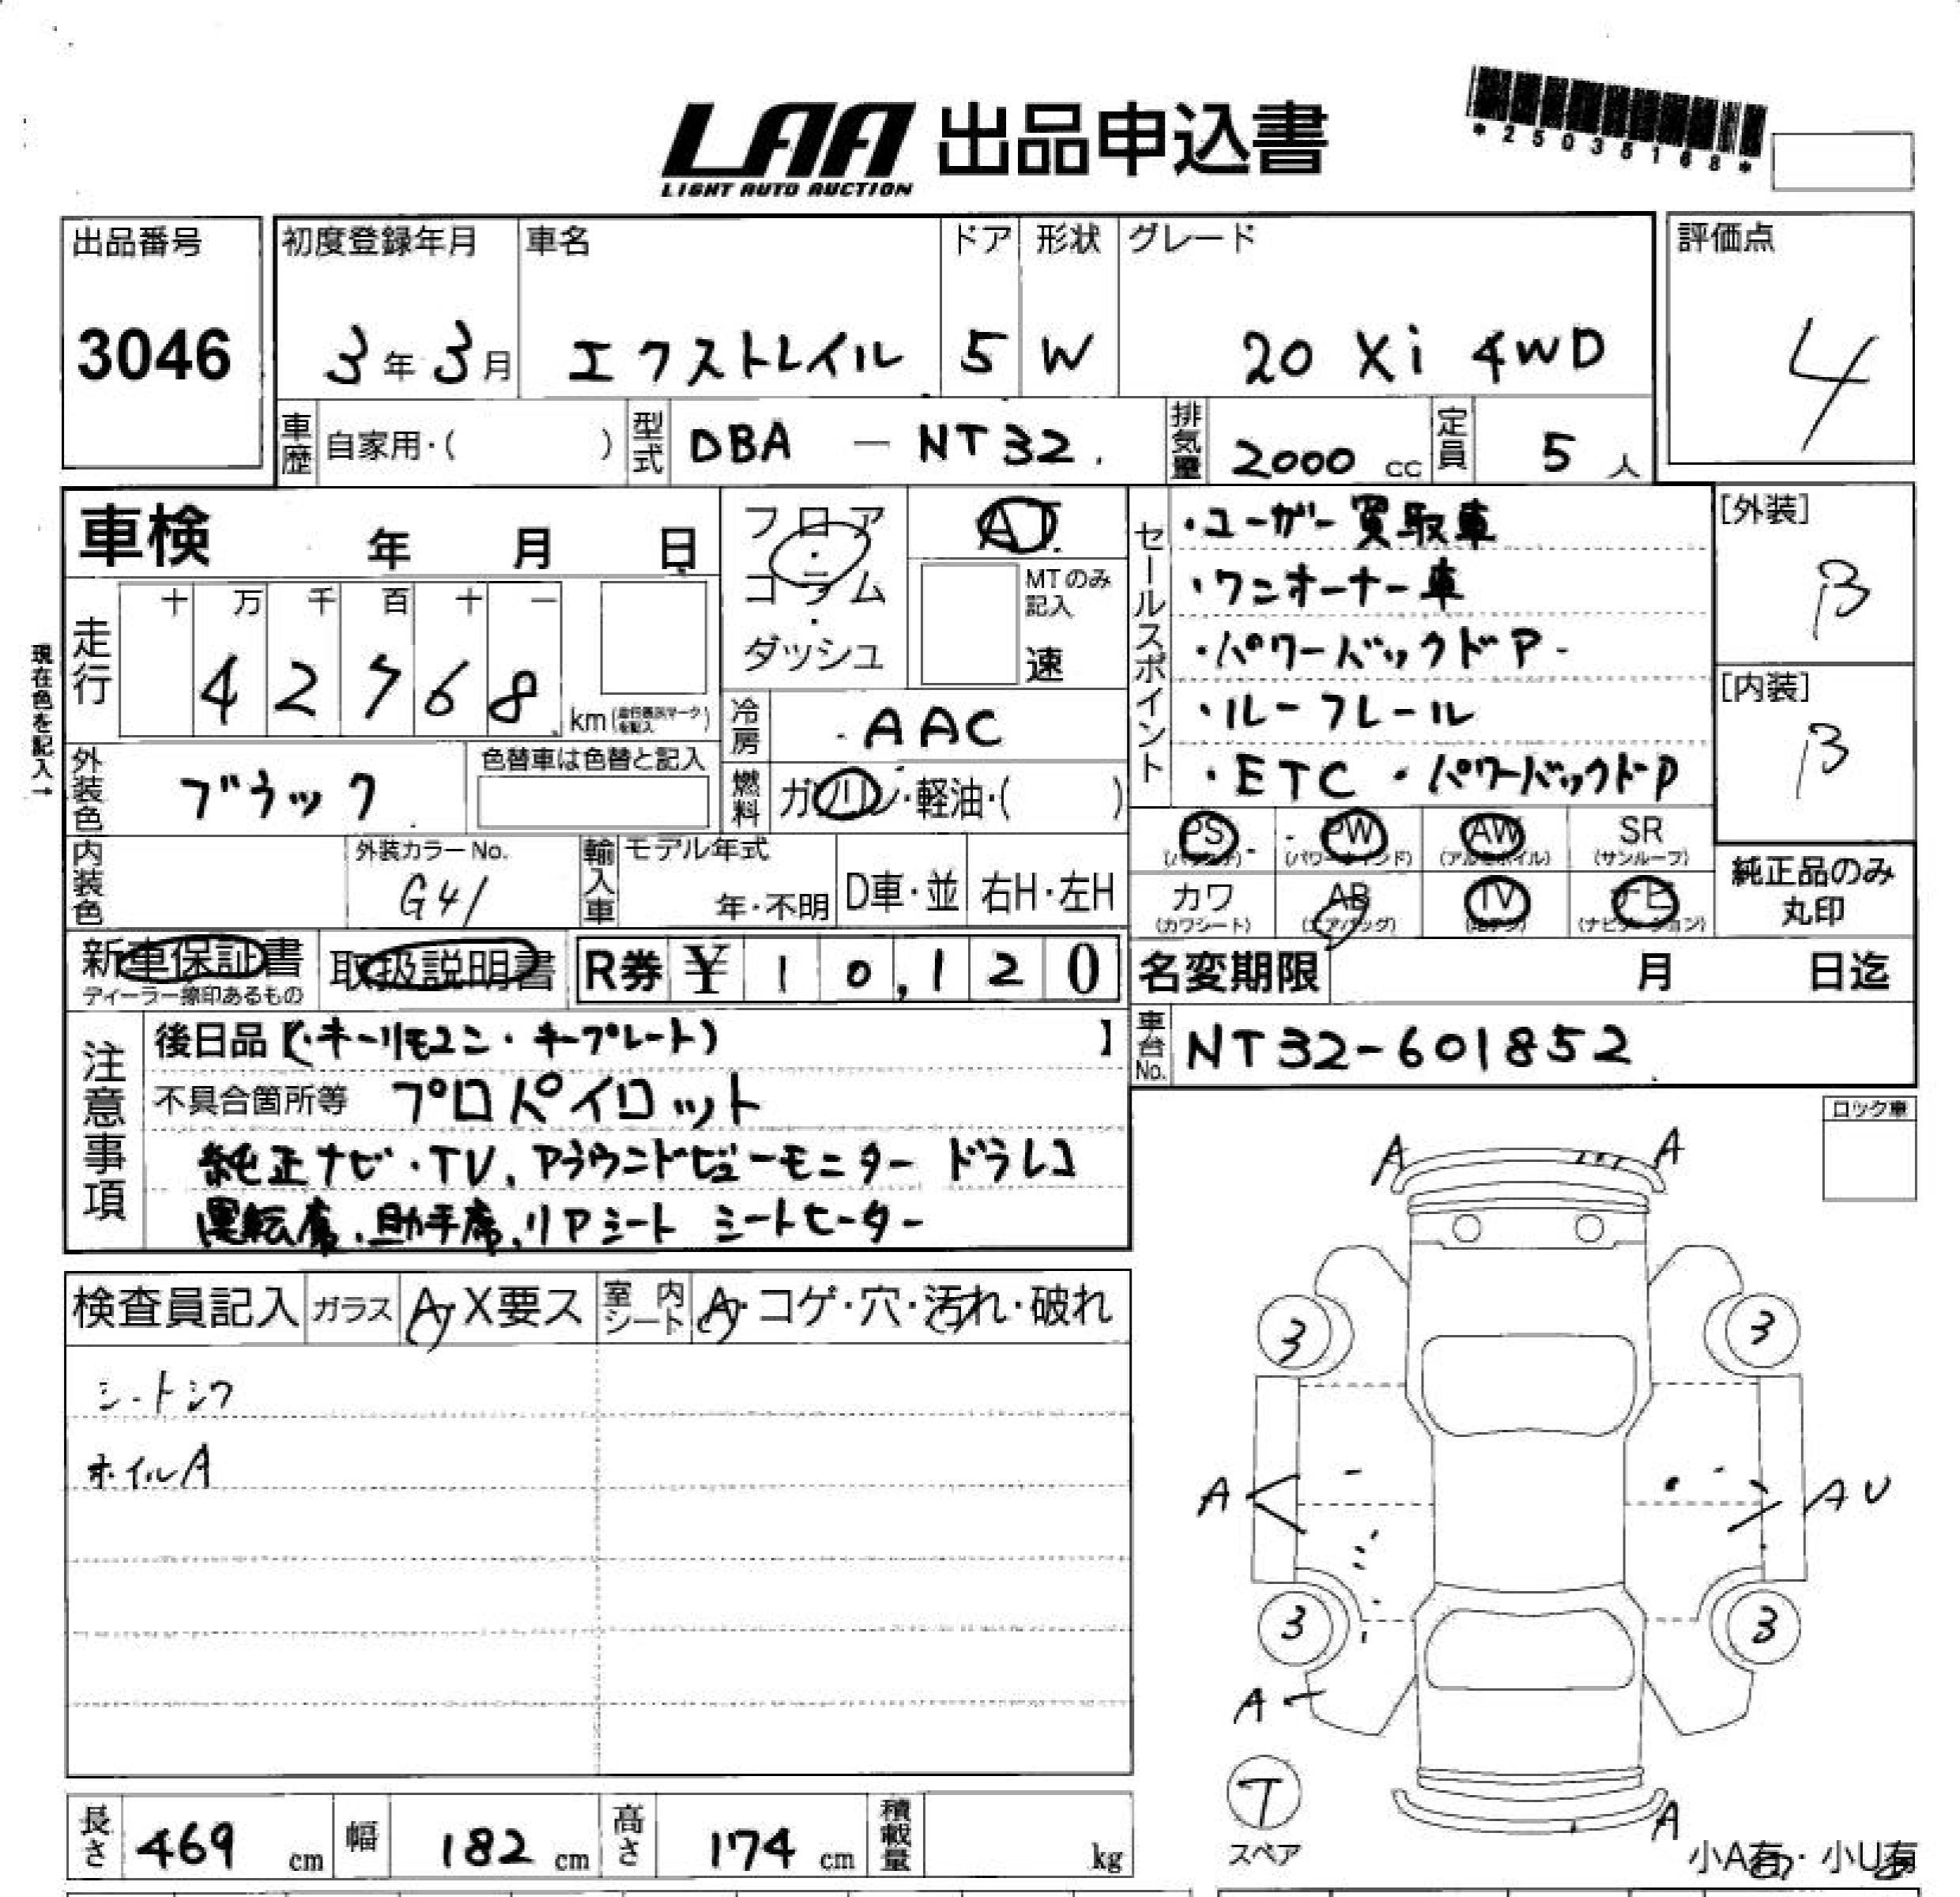 LAA 出品申込書
LIGHT AUTO AUCTION
*25035168*
出品番号
3046
初度登録年月
3年3月
車名
エクストレイル
ドア
5
形状
W
グレード
20 Xi 4WD
評価点
4
車歴
自家用・( )
型式
DBA - NT32
排気量
2000 cc
定員
5 人
車検 年 月 日
走行
十 万 千 百 十 一
4 2 7 6 8
km
現在色を記入→
フロア
・
コラム
・
ダッシュ
AT
MTのみ
記入
速
冷房
AAC
燃料
ガソリン・軽油・( )
外装色
ブラック
色替車は色替と記入
内装色
外装カラーNo.
G41
輸入車
モデル年式
年・不明
D車・並
右H・左H
セールスポイント
・ユーザー買取車
・ワンオーナー車
・パワーバックドP
・ルーフレール
・ETC ・パワーバックドP
[外装]
B
[内装]
B
PS
PW
(パワーウィンド)
AW
SR
(サンルーフ)
カワ
(カワシート)
AB
(エアバッグ)
TV
ナビ
(ナビゲーション)
純正品のみ
丸印
新車保証書
ディーラー捺印あるもの
取扱説明書
R券 ¥ 10,120
名変期限 月 日迄
車台No.
NT32-601852
注意事項
後日品【(・キーリモコン・キープレート) 】
不具合箇所等 プロパイロット
純正ナビ・TV、アラウンドビューモニター ドラレコ
運転席、助手席、リアシート シートヒーター
ロック車
検査員記入
ガラス
A・X要ス
室内シート
A・コゲ・穴・汚れ・破れ
シートシワ
ホイルA
A
A
3
3
A
A U
3
3
A
T
スペア
A
小A有・小U有
長さ
469 cm
幅
182 cm
高さ
174 cm
積載量
kg